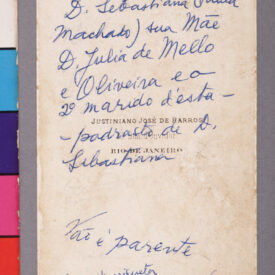 D. Sebastiana (
Machado) sua Mãe
D. Julia de Mello
e Oliveira e o
2º marido d'esta -
- padrasto de D.
JUSTINIANO JOSÉ DE BARROS
Sebastiana
RIO DE JANEIRO
Não é parente